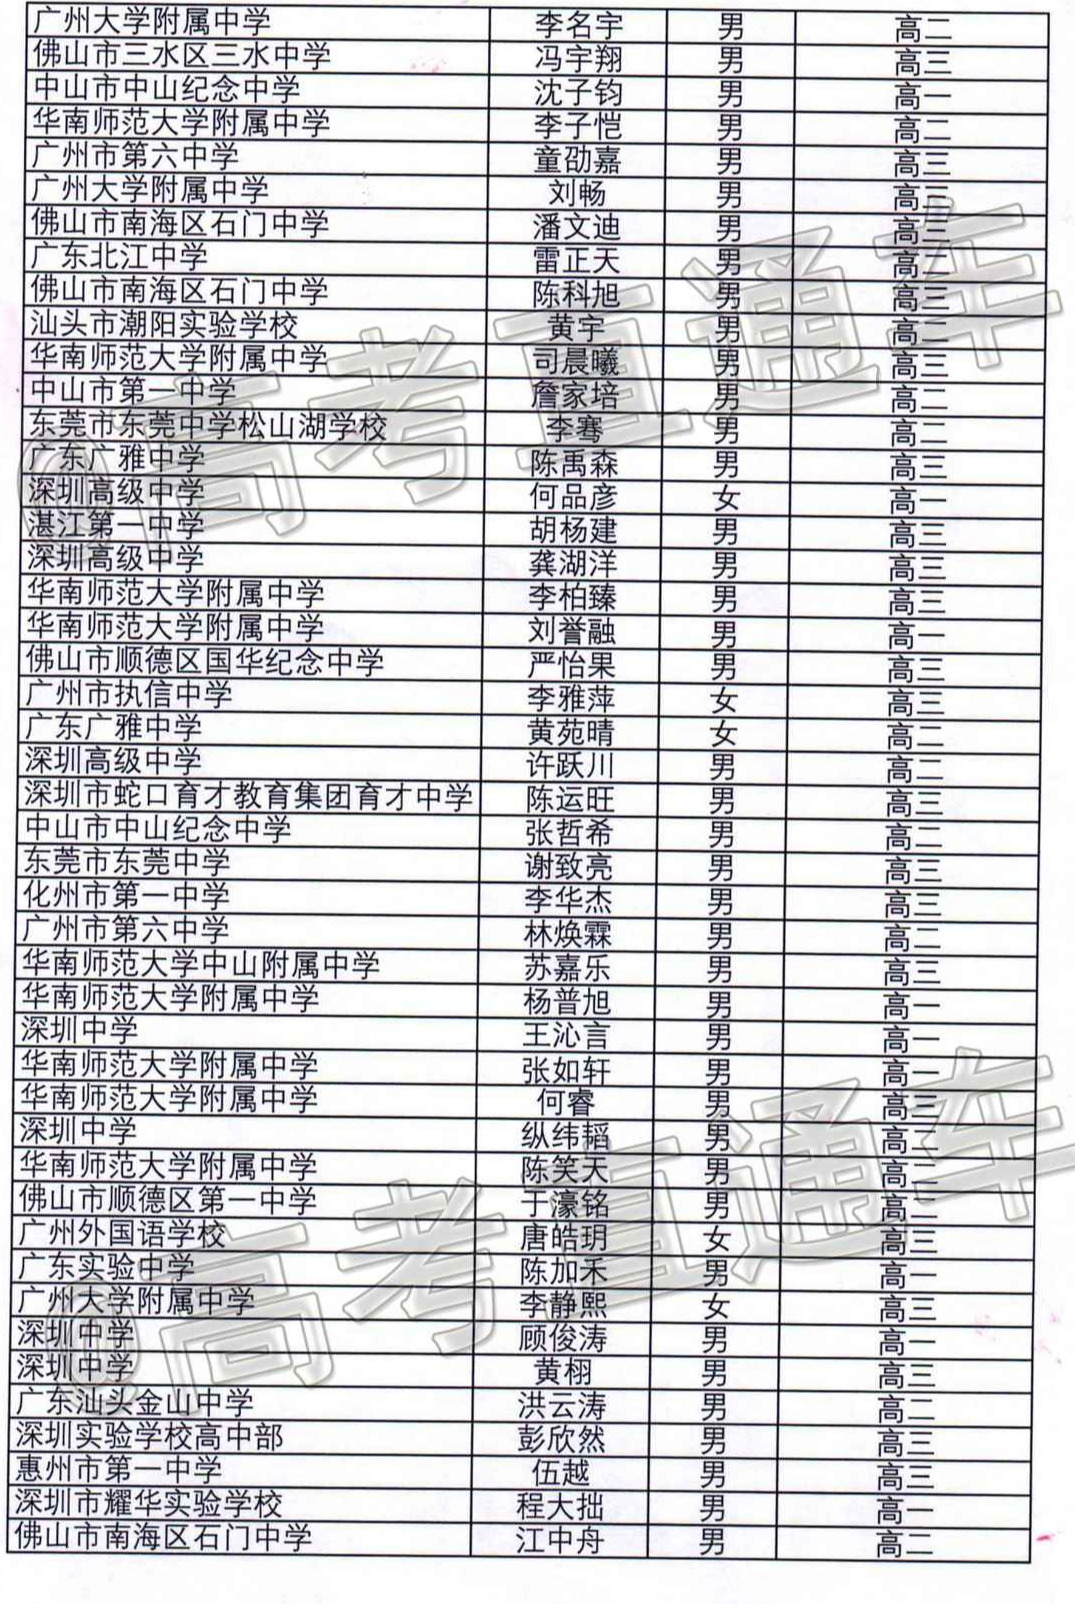 广州大学附属中学 李名宇 男 高二
佛山市三水区三水中学 冯宇翔 男 高三
中山市中山纪念中学 沈子钧 男 高一
华南师范大学附属中学 李子恺 男 高二
广州市第六中学 童劭嘉 男 高三
广州大学附属中学 刘畅 男 高三
佛山市南海区石门中学 潘文迪 男 高三
广东北江中学 雷正天 男 高二
佛山市南海区石门中学 陈科旭 男 高三
汕头市潮阳实验学校 黄宇 男 高二
华南师范大学附属中学 司晨曦 男 高三
中山市第一中学 詹家培 男 高二
东莞市东莞中学松山湖学校 李骞 男 高二
广东广雅中学 陈禹森 男 高三
深圳高级中学 何品彦 女 高一
湛江第一中学 胡杨建 男 高三
深圳高级中学 龚湖洋 男 高三
华南师范大学附属中学 李柏臻 男 高三
华南师范大学附属中学 刘誉融 男 高一
佛山市顺德区国华纪念中学 严怡果 男 高三
广州市执信中学 李雅萍 女 高三
广东广雅中学 黄苑晴 女 高二
深圳高级中学 许跃川 男 高二
深圳市蛇口育才教育集团育才中学 陈运旺 男 高三
中山市中山纪念中学 张哲希 男 高二
东莞市东莞中学 谢致亮 男 高三
化州市第一中学 李华杰 男 高三
广州市第六中学 林焕霖 男 高二
华南师范大学中山附属中学 苏嘉乐 男 高三
华南师范大学附属中学 杨普旭 男 高一
深圳中学 王沁言 男 高一
华南师范大学附属中学 张如轩 男 高一
华南师范大学附属中学 何睿 男 高三
深圳中学 纵纬韬 男 高二
华南师范大学附属中学 陈笑天 男 高二
佛山市顺德区第一中学 于濠铭 男 高二
广州外国语学校 唐皓玥 女 高三
广东实验中学 陈加禾 男 高一
广州大学附属中学 李静熙 女 高三
深圳中学 顾俊涛 男 高一
深圳中学 黄栩 男 高三
广东汕头金山中学 洪云涛 男 高二
深圳实验学校高中部 彭欣然 男 高三
惠州市第一中学 伍越 男 高三
深圳市耀华实验学校 程大拙 男 高一
佛山市南海区石门中学 江中舟 男 高二
@高考直通车
@高考直通车